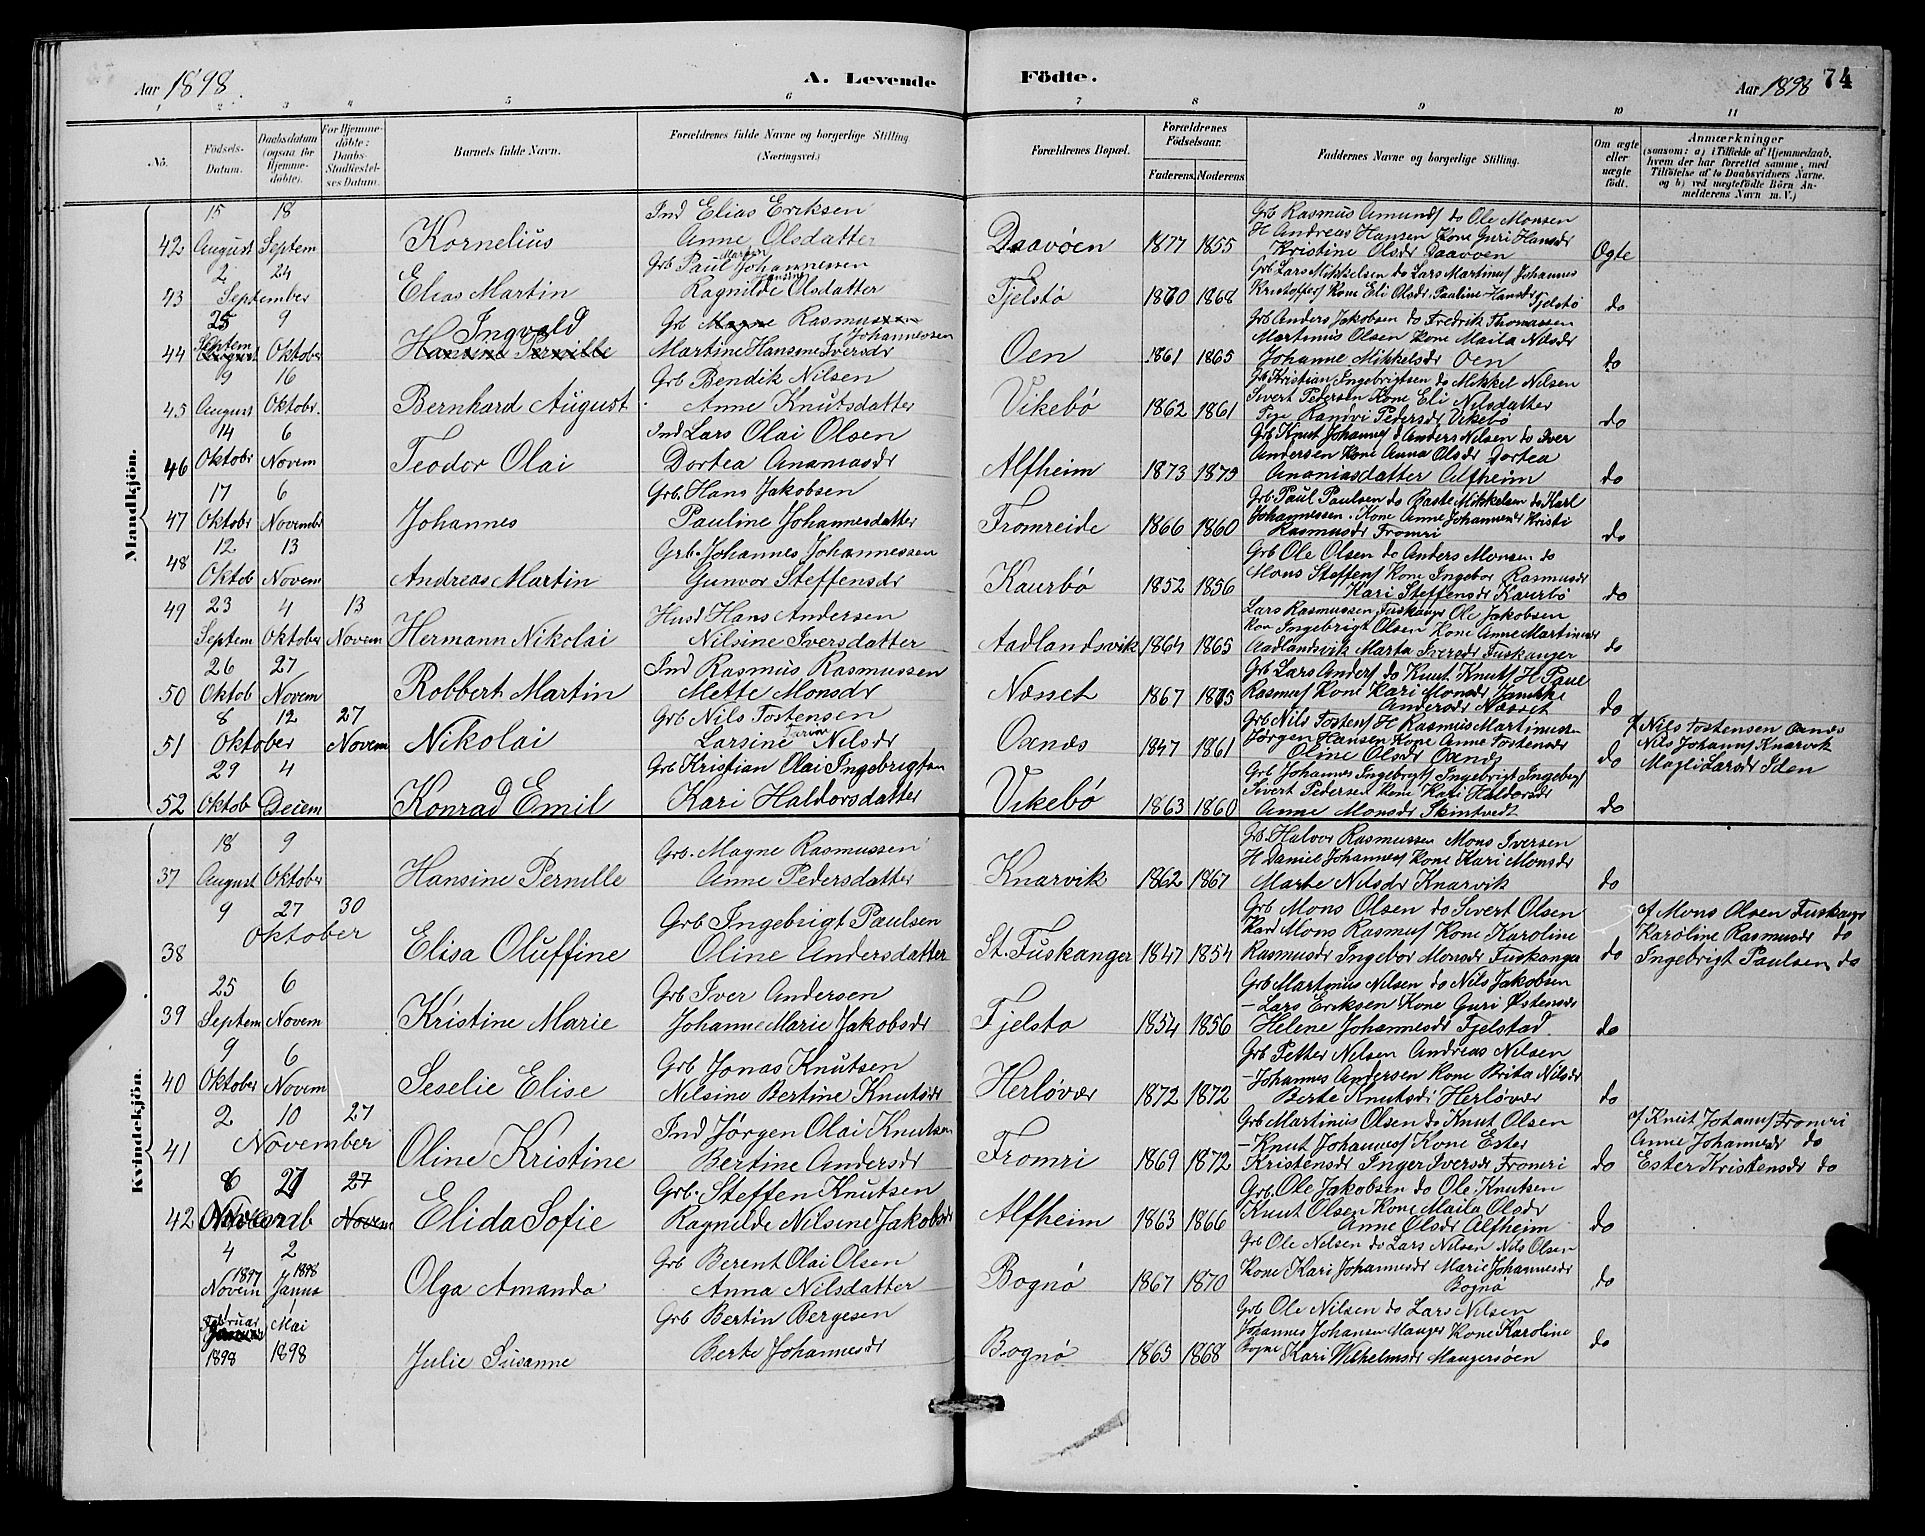 Aar 1898.
A. Levende
Födte.
Aar 1898
74
1 2 3 4 5 6 7 8 9 10 11
No.
Födsels-Datum.
Daabsdatum (ogsaa for Hjemme-döbte).
For Hjemme-döbte: Daabs-Stadfæstel-ses Datum.
Barnets fulde Navn.
Forældrenes fulde Navne og borgerlige Stilling (Næringsvei.)
Forældrenes Bopæl.
Forældrenes Födselsaar.
Faderens. Moderens
Faddernes Navne og borgerlige Stilling.
Om ægte eller uægte födt.
Anmærkninger
(saasom: a) i Tilfælde af Hjemmedaab, hvem der har forrettet samme, med Tilföielse af to Daabsvidners Navne. og b) ved uægtefödte Börn An-melderens Navn m. V.)
Mandkjön.
42 15 August 18 Septem Kornelius
Ind Elias Eriksen
Anne Olsdatter
Daavöen 1877 1855
Grb Rasmus Amunds do Ole Monsen
H Andreas Hansen Kone Guri Hansdr
Kristine Olsdr Daavöen
Ægte
43 2 24 September Elias Martin
Grb Paul Martin Johannessen
Ragnilde Hansine Olsdatter
Fjelstö 1870 1868
Grb Lars Mikkelsen do Lars Martinus Johannes
Kristoffers Kone Eli Olsdr. Pauline Hansdr Fjelstö
do
44 25 Septem 9 Oktober Ingvald
Hansine Pernille
Grb Magne Rasmussen Johannessen
Martine Hansine Iversdr
Oen 1861 1865
Grb Anders Jakobsen do Fredrik Thomassen
Martinus Olsen Kone Maila Nilsdr
Johanne Mikkelsdr Oen
do
45 9 August 16 Oktobr. Bernhard August
Grb Bendik Nilsen
Anne Knutsdatter
Vikebö 1862 1861
Grb Kristian Ingebrigtsen do Mikkel Nilsen
Sivert Pedersen Kone Eli Nilsdatter
Pige Ranövi Pedersdr Vikebö
do
46 14 Oktobr 6 Novem Teodor Olai
Ind Lars Olai Olsen
Dortea Ananiasdr
Alfheim 1873 1879
Grb Knut Johannes do Anders Nilsen do Iver
Andersen Kone Anna Olsdr Dortea
Ananiasdatter Alfheim
do
47 17 Oktober 6 Novembr Johannes
Grb. Hans Jakobsen
Pauline Johannesdatter
Fromreide 1866 1860
Grb Paul Paulsen do Baste Mikkelsen do Karl
Johannessen. Kone Anne Johannesdr Kristi
Rasmusdr Fromri
do
48 12 Oktob 13 Novem Andreas Martin
Grb. Johannes Johannessen
Gunvor Steffensdr
Kaurbö 1852 1856
Grb Ole Olsen do Anders Monsen do
Mons Steffens Kone Ingebor Rasmusdr
Kari Steffensdr Kaurbö
do
49 23 Septem 4 Oktober 13 Novem Hermann Nikolai
Husd Hans Andersen
Nilsine Iversdatter
Aadlandsvik 1864 1865
Lars Rasmussen Fuskanger Ole Jakobsen
Ingebrigt Olsen Kone Anne Martinusdr
Aadlandsvik Marta Iversdr Fuskanger
do
50 26 Oktob 27 Novem Robbert Martin
Ind Rasmus Rasmussen
Mette Monsdr
Næsset 1867 1875
Grb Lars Anders do Knut Knuts H Paul
Rasmus Kone Kari Monsdr Jannike
Andersdr Næsset
do
51 8 12 Oktober 27 Novem Nikolai
Grb Nils Tostensen
Larsine Farine Nilsdr
Oxnæs 1847 1861
Grb Nils Tostens H Rasmus Martinussen
Jörgen Hansen Kone Anne Tostensdr
Oline Olsdr Oxnæs
do
af Nils Tostensen Oxnæs
Nils Johannes Knarvik
Magli Larsdr Iden
52 29 Oktob 4 Deiem Konrad Emil
Grb Kristian Olai Ingebrigtsen
Kari Haldorsdatter
Vikebö 1863 1860
Grb Johannes Ingebrigts Ingebrigt Ingebrigs
Sivert Pedersen Kone Kari Haldorsdr
Anne Monsdr Skintvedt
do
Kvindekjön.
37 18 August 9 Oktober Hansine Pernille
Grb. Magne Rasmussen
Anne Pedersdatter
Knarvik 1862 1867
Grb. Halvor Rasmussen Mons Iversen
H Daniel Johannes Kone Kari Monsdr
Marte Nilsdr Knarvik
do
38 9 27 30 Oktober Elisa Oluffine
Grb Ingebrigt Paulsen
Oline Andersdatter
St. Fuskanger 1847 1854
Grb Mons Olsen do Sivert Olsen
Mons Rasmus Kone Karoline
Rasmusdr Ingebor Monsdr Fuskanger
do
af Mons Olsen Fuskanger
Karoline Rasmusdr do
Ingebrigt Paulsen do
39 25 Septem 6 Novem Kristine Marie
Grb Iver Andersen
Johanne Marie Jakobsdr
Fjelsto 1854 1856
Grb Martinus Nilsen do Nils Jakobsen
- Lars Eriksen Kone Guri Østensdr
Helene Johannesdr Fjelstad
do
40 9 Oktober 6 Novem Seselie Elise
Grb Jonas Knutsen
Nilsine Bertine Knutsdr
Herlövær 1872 1872
Grb Petter Nilsen Andreas Nilsen
- Johannes Andersen Kone Brita Nilsdr
Berte Knutsdr Herlövær
do
41 2 10 27 November Oline Kristine
Ind Jörgen Olai Knutsen
Bertine Andersdr
Fromri 1869 1872
Grb Martinus Olsen do Knut Olsen
- Knut Johannes Kone Ester
Kristensdr Inger Iversdr Fromri
do
af Knut Johans Fromri
Anne Johannesdr do
Ester Kristensdr do
42 6 27 Novemb 27 Novem Elida Sofie
Grb. Steffen Knutsen
Ragnilde Nilsine Jakobsdr
Alfheim 1863 1866
Grb. Ole Jakobsen do Ole Knutsen
Knut Olsen Kone Maila Olsdr
Anne Olsdr Alfheim
do
4 Novem 1897 2 Janua 1898 Olga Amanda
Grb Berent Olai Olsen
Anna Nilsdatter
Bognö 1867 1870
Grb Ole Nelsen do Lars Nelsen Nils Olsen
Kone Kari Johannesdr Marie Johannesdr
Bognö
do
1 Februar Januar 1898 1 Mai 1898 Julie Susanne
Grb Bertin Bergesen
Berte Johannesdr
Bognö 1865 1868
Grb Ole Nilsen do Lars Nilsen
Johannes Johansen Manger Kone Karoline
Bognö Kari Wilhelmsdr Mangersöen
do